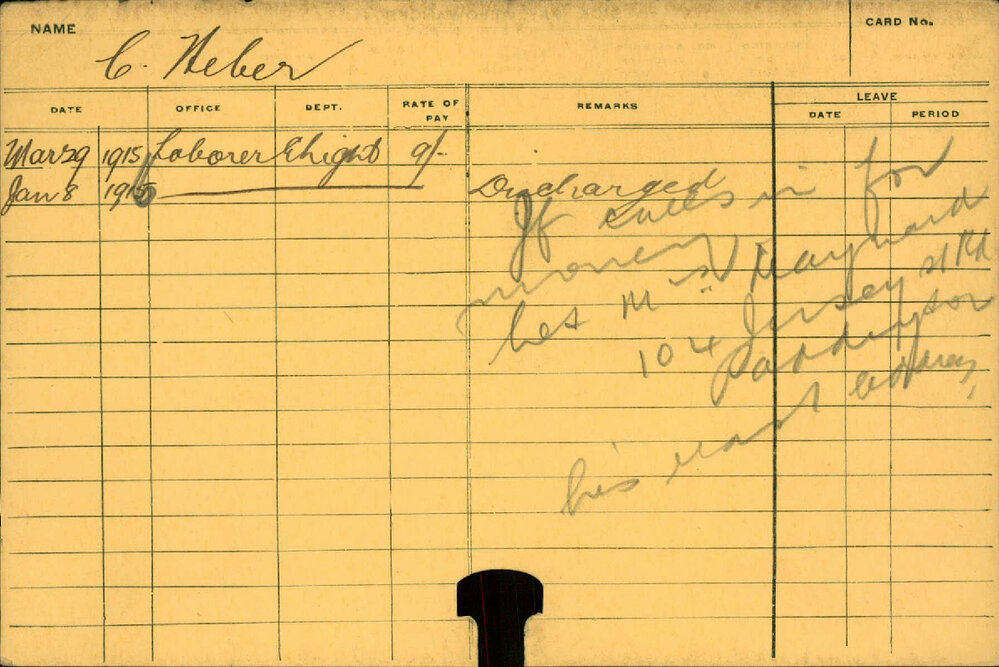 NAME
CARD No.
C. Heber
DATE OFFICE DEPT. RATE OF PAY REMARKS LEAVE
DATE PERIOD
Mar 29 1915 Laborer 9/-
Jan 8 1916 Discharged
If calls in for
money
let Mrs Maynard
104 Jersey st Rd
Paddington
his last address,